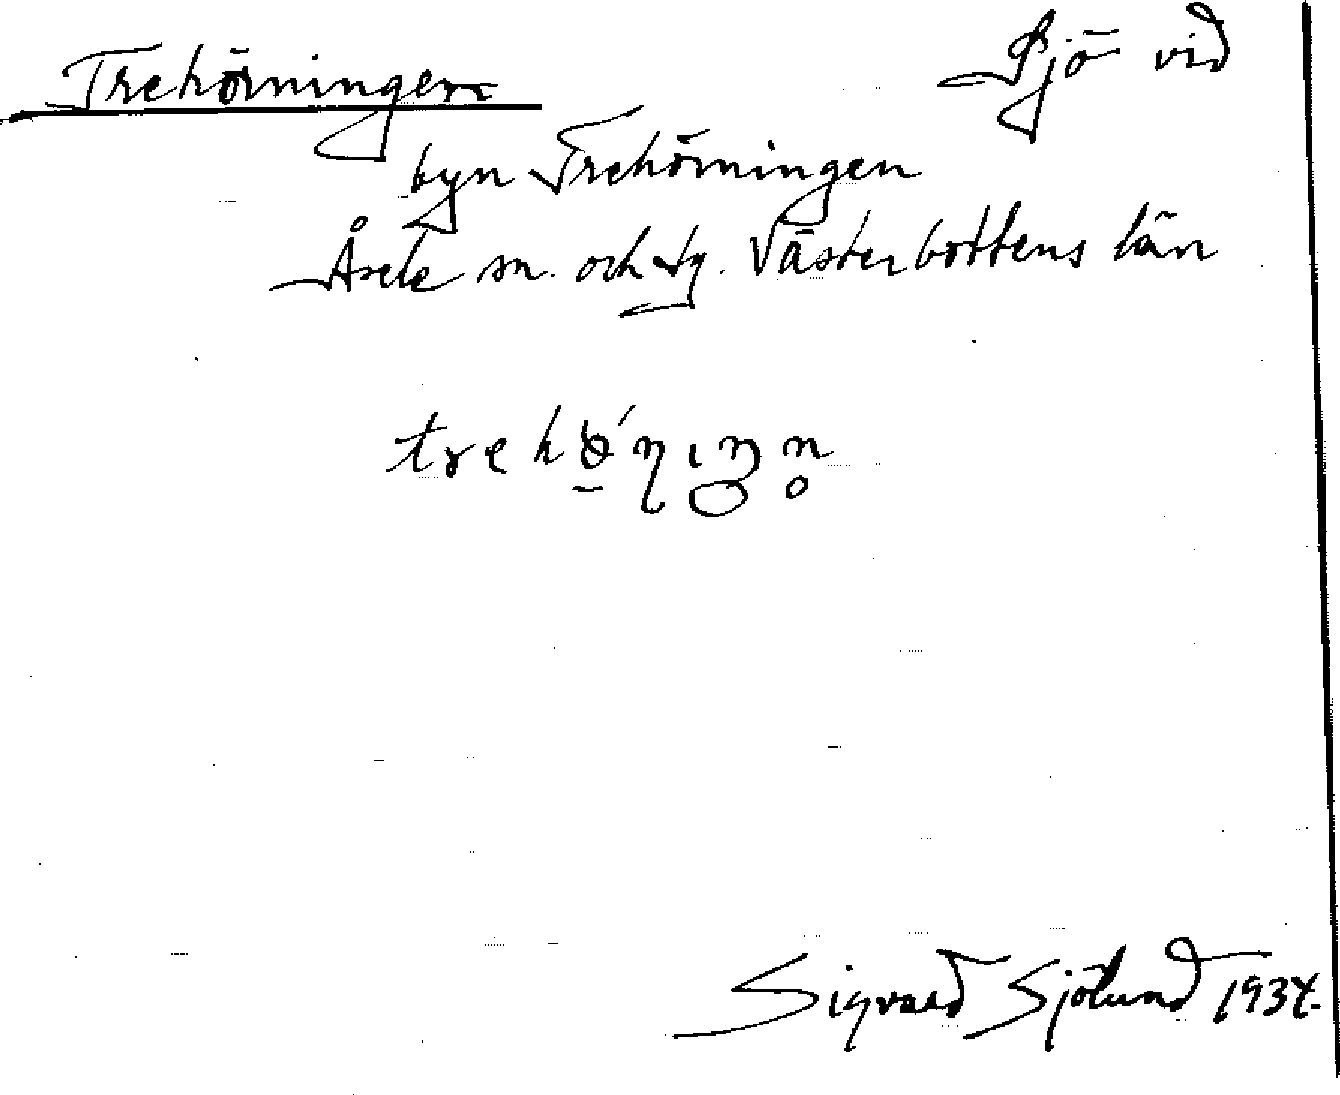 Trehörningen Sjö vid
byn Trehörningen
Åsele sn. och tg. Västerbottens län
Sigvard Sjölund 1934.